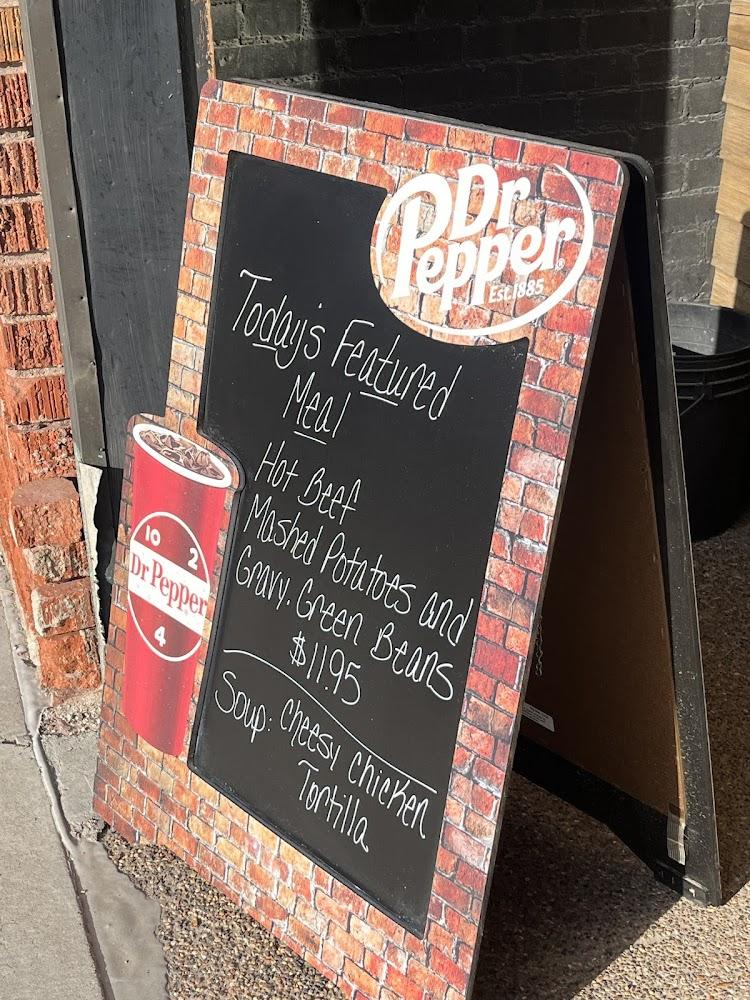 Dr
Pepper
Est.1885
Today's Featured
Meal
Hot Beef
Mashed Potatoes and
Gravy. Green Beans
$11.95
Soup: Cheesy Chicken
Tortilla
10 2
Dr Pepper
4